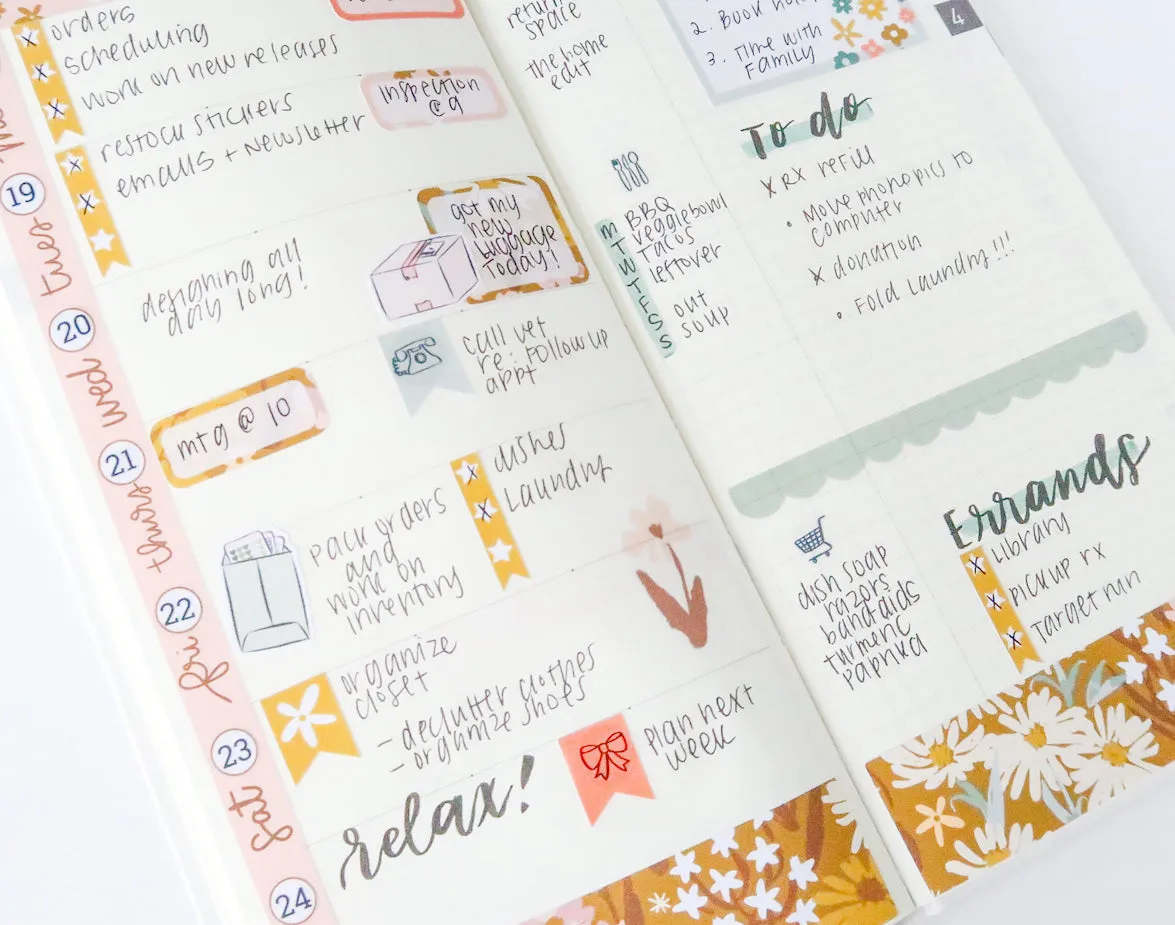 orders
scheduling
work on new releases
restock stickers
emails + newsletter
inspection
@ 9
19
tues
designing all
day long!
got my
new
luggage
today!
20
wed
call vet
re: follow up
appt
mtg @ 10
21
thurs
pack orders
and
work on
inventory
dishes
laundry
22
fri
organize
closet
- declutter clothes
- organize shoes
23
sat
relax!
plan next
week
24
return
space
the home
edit
2. Book
3. Time with
Family
4
To do
x RX refill
• Move phone pics to
computer
x donation
• Fold Laundry!!!
M BBQ
T veggiebowl
W Tacos
T leftover
F
S out
S soup
Errands
Library
pick up rx
Target run
dish soap
razors
bandaids
turmeric
paprika